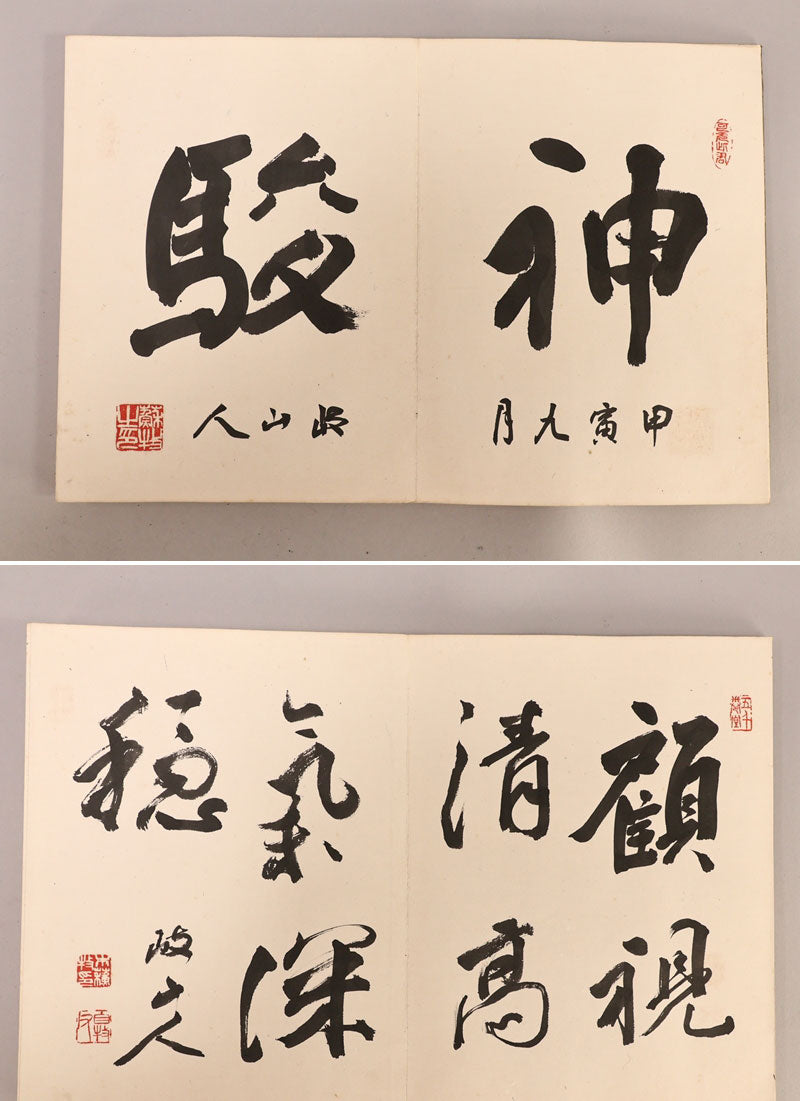 神駿
甲寅九月
山人
顧視
清高
氣深
穏
山人